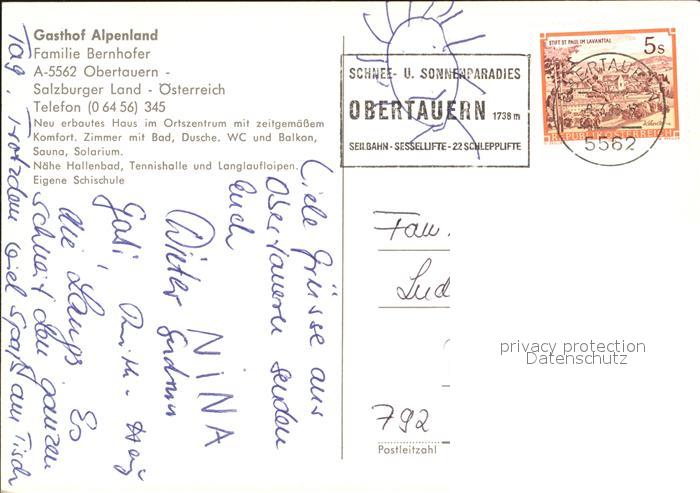 Gasthof Alpenland
Familie Bernhofer
A-5562 Obertauern -
Salzburger Land - Österreich
Telefon (0 64 56) 345
Neu erbautes Haus im Ortszentrum mit zeitgemäßem
Komfort. Zimmer mit Bad, Dusche. WC und Balkon,
Sauna, Solarium.
Nähe Hallenbad, Tennishalle und Langlaufloipen.
Eigene Schischule
SCHNEE- U. SONNENPARADIES
OBERTAUERN 1738 m
SEILBAHN - SESSELLIFTE - 22 SCHLEPPLIFTE
STIFT ST. PAUL IM LAVANTTAL
5s
REPUBLIK ÖSTERREICH
OBERTAUERN
5562
Liebe Grüsse aus
Obertauern senden
Euch
NINA
Gabi,
die Langs Es
schneit den ganzen
Tag, trotzdem viel Spaß am Tisch
Fam.
Lud
792
Postleitzahl
privacy protection
Datenschutz